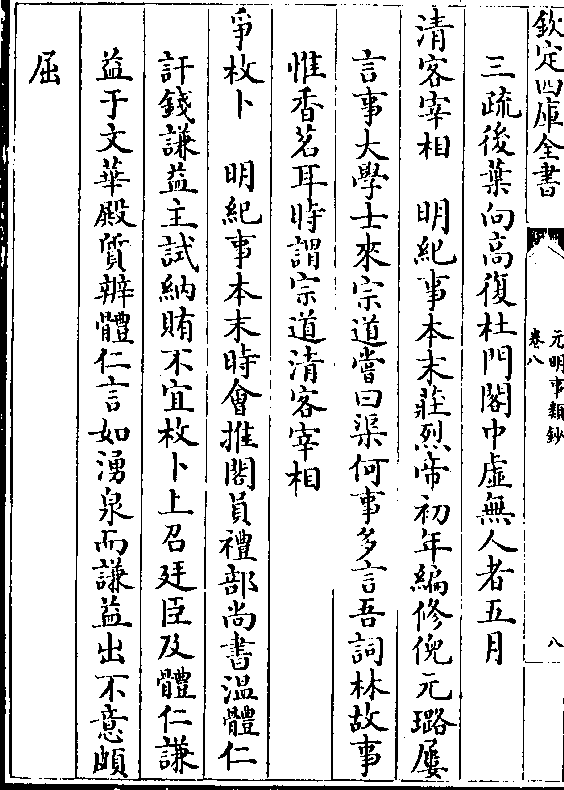 欽定四庫全書
元明事類鈔
卷八
八
三疏後葉向高復杜門閣中虛無人者五月
清客宰相　明紀事本末莊烈帝初年編修倪元璐屢
言事大學士來宗道嘗曰渠何事多言吾詞林故事
惟香茗耳時謂宗道清客宰相
爭枚卜　明紀事本末時會推閣員禮部尚書溫體仁
訐錢謙益主試納賄不宜枚卜上召廷臣及體仁謙
益于文華殿質辨體仁言如湧泉而謙益出不意頗
屈